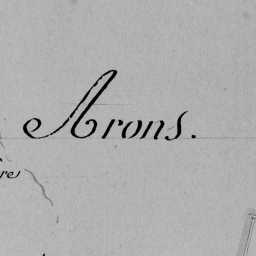 Arons.
re